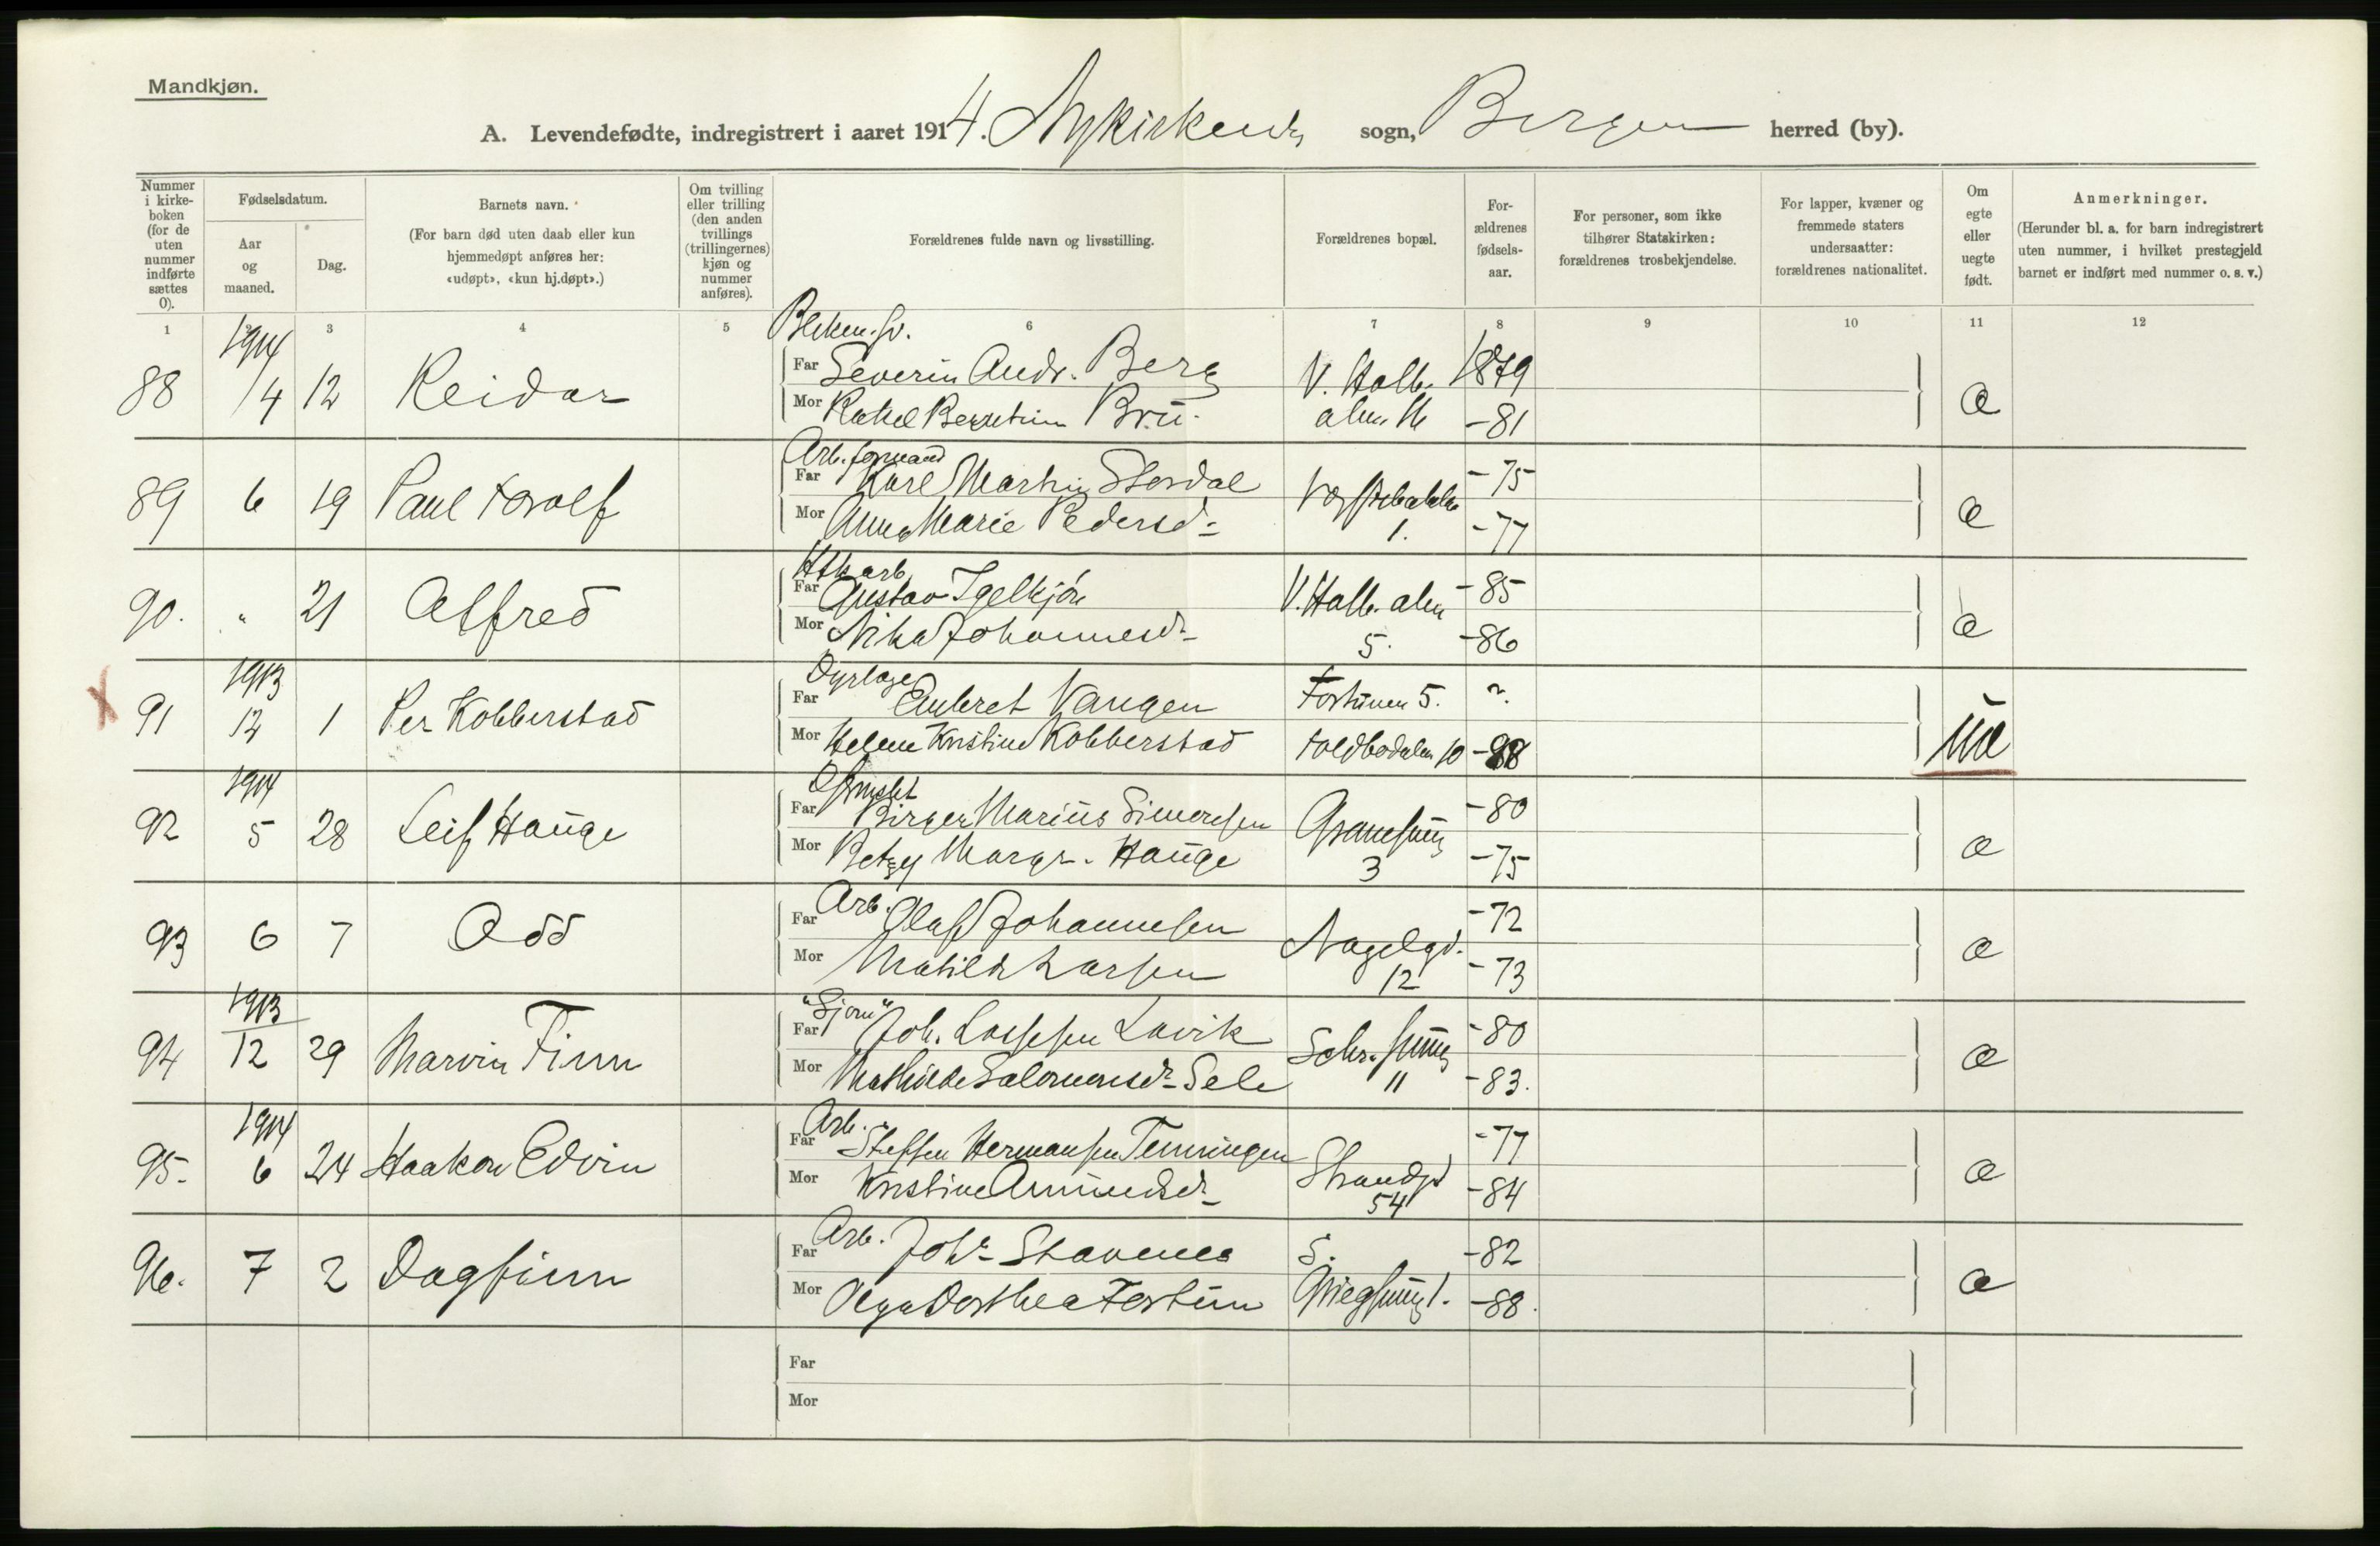 Mandkjøn.
A. Levendefødte, indregistrert i aaret 1914. Nykirkens sogn, Bergen herred (by).
Nummer i kirke-boken (for de uten nummer indførte sættes 0).
Fødselsdatum.
Aar og maaned.
Dag.
Barnets navn.
(For barn død uten daab eller kun hjemmedøpt anføres her: «udøpt», «kun hj.døpt».)
Om tvilling eller trilling (den anden tvillings (trillingernes) kjøn og nummer anføres).
Forældrenes fulde navn og livsstilling.
Forældrenes bopæl.
For-ældrenes fødsels-aar.
For personer, som ikke tilhører Statskirken: forældrenes trosbekjendelse.
For lapper, kvæner og fremmede staters undersaatter: forældrenes nationalitet.
Om egte eller uegte født.
Anmerkninger.
(Herunder bl. a. for barn indregistrert uten nummer, i hvilket prestegjeld barnet er indført med nummer o. s. v.)
1 2 3 4 5 6 7 8 9 10 11 12
1914
88 /4 12 Reidar Far Severin Andr. Berg V. Holb. 1879
Mor Rakel Berntine Brü. alm. -81
Arb. formand
89 6 19 Paul Torolf Far Karl Martin Stordal -75
Mor Anna Marie Pedersd. 1. -77
90. " 21 Alfred Far Gustav Igelkjön V. Holb. alm -85
Mor Johannesd. 5. -86
1913
91 12 1 Per Kobberstad Far Embret Vangen Fortunen 5. ?
Mor Helene Kristine Kobberstad Toldbodalm 10 -88
1914
92 5 28 Leif Hauge Far Birger Marius Simonsen -80
Mor Betzy Margr. Hauge 3 -75
Arb.
93 6 7 Odd Far Olaf Johannesen Nagelgd. -72
Mor Matilde Larsen 12 -73
1913 "Sjøm"
94 12 29 Marvin Finn Far Joh. Lassesen Lavik -80
Mor Mathilde Salomonsdr. Sele 11 -83.
1914 Arb.
95. 6 24 Haakon Edvin Far Steffen Hermansen Tenningen Strandgd -77
Mor Kristine Amundsdr. 54 -84
Arb.
96. 7 2 Dagfinn Far Johs. Stavenes S. -82
Mor Olga Dorthea Fortun Griegsmug 1. -88.
Far
Mor